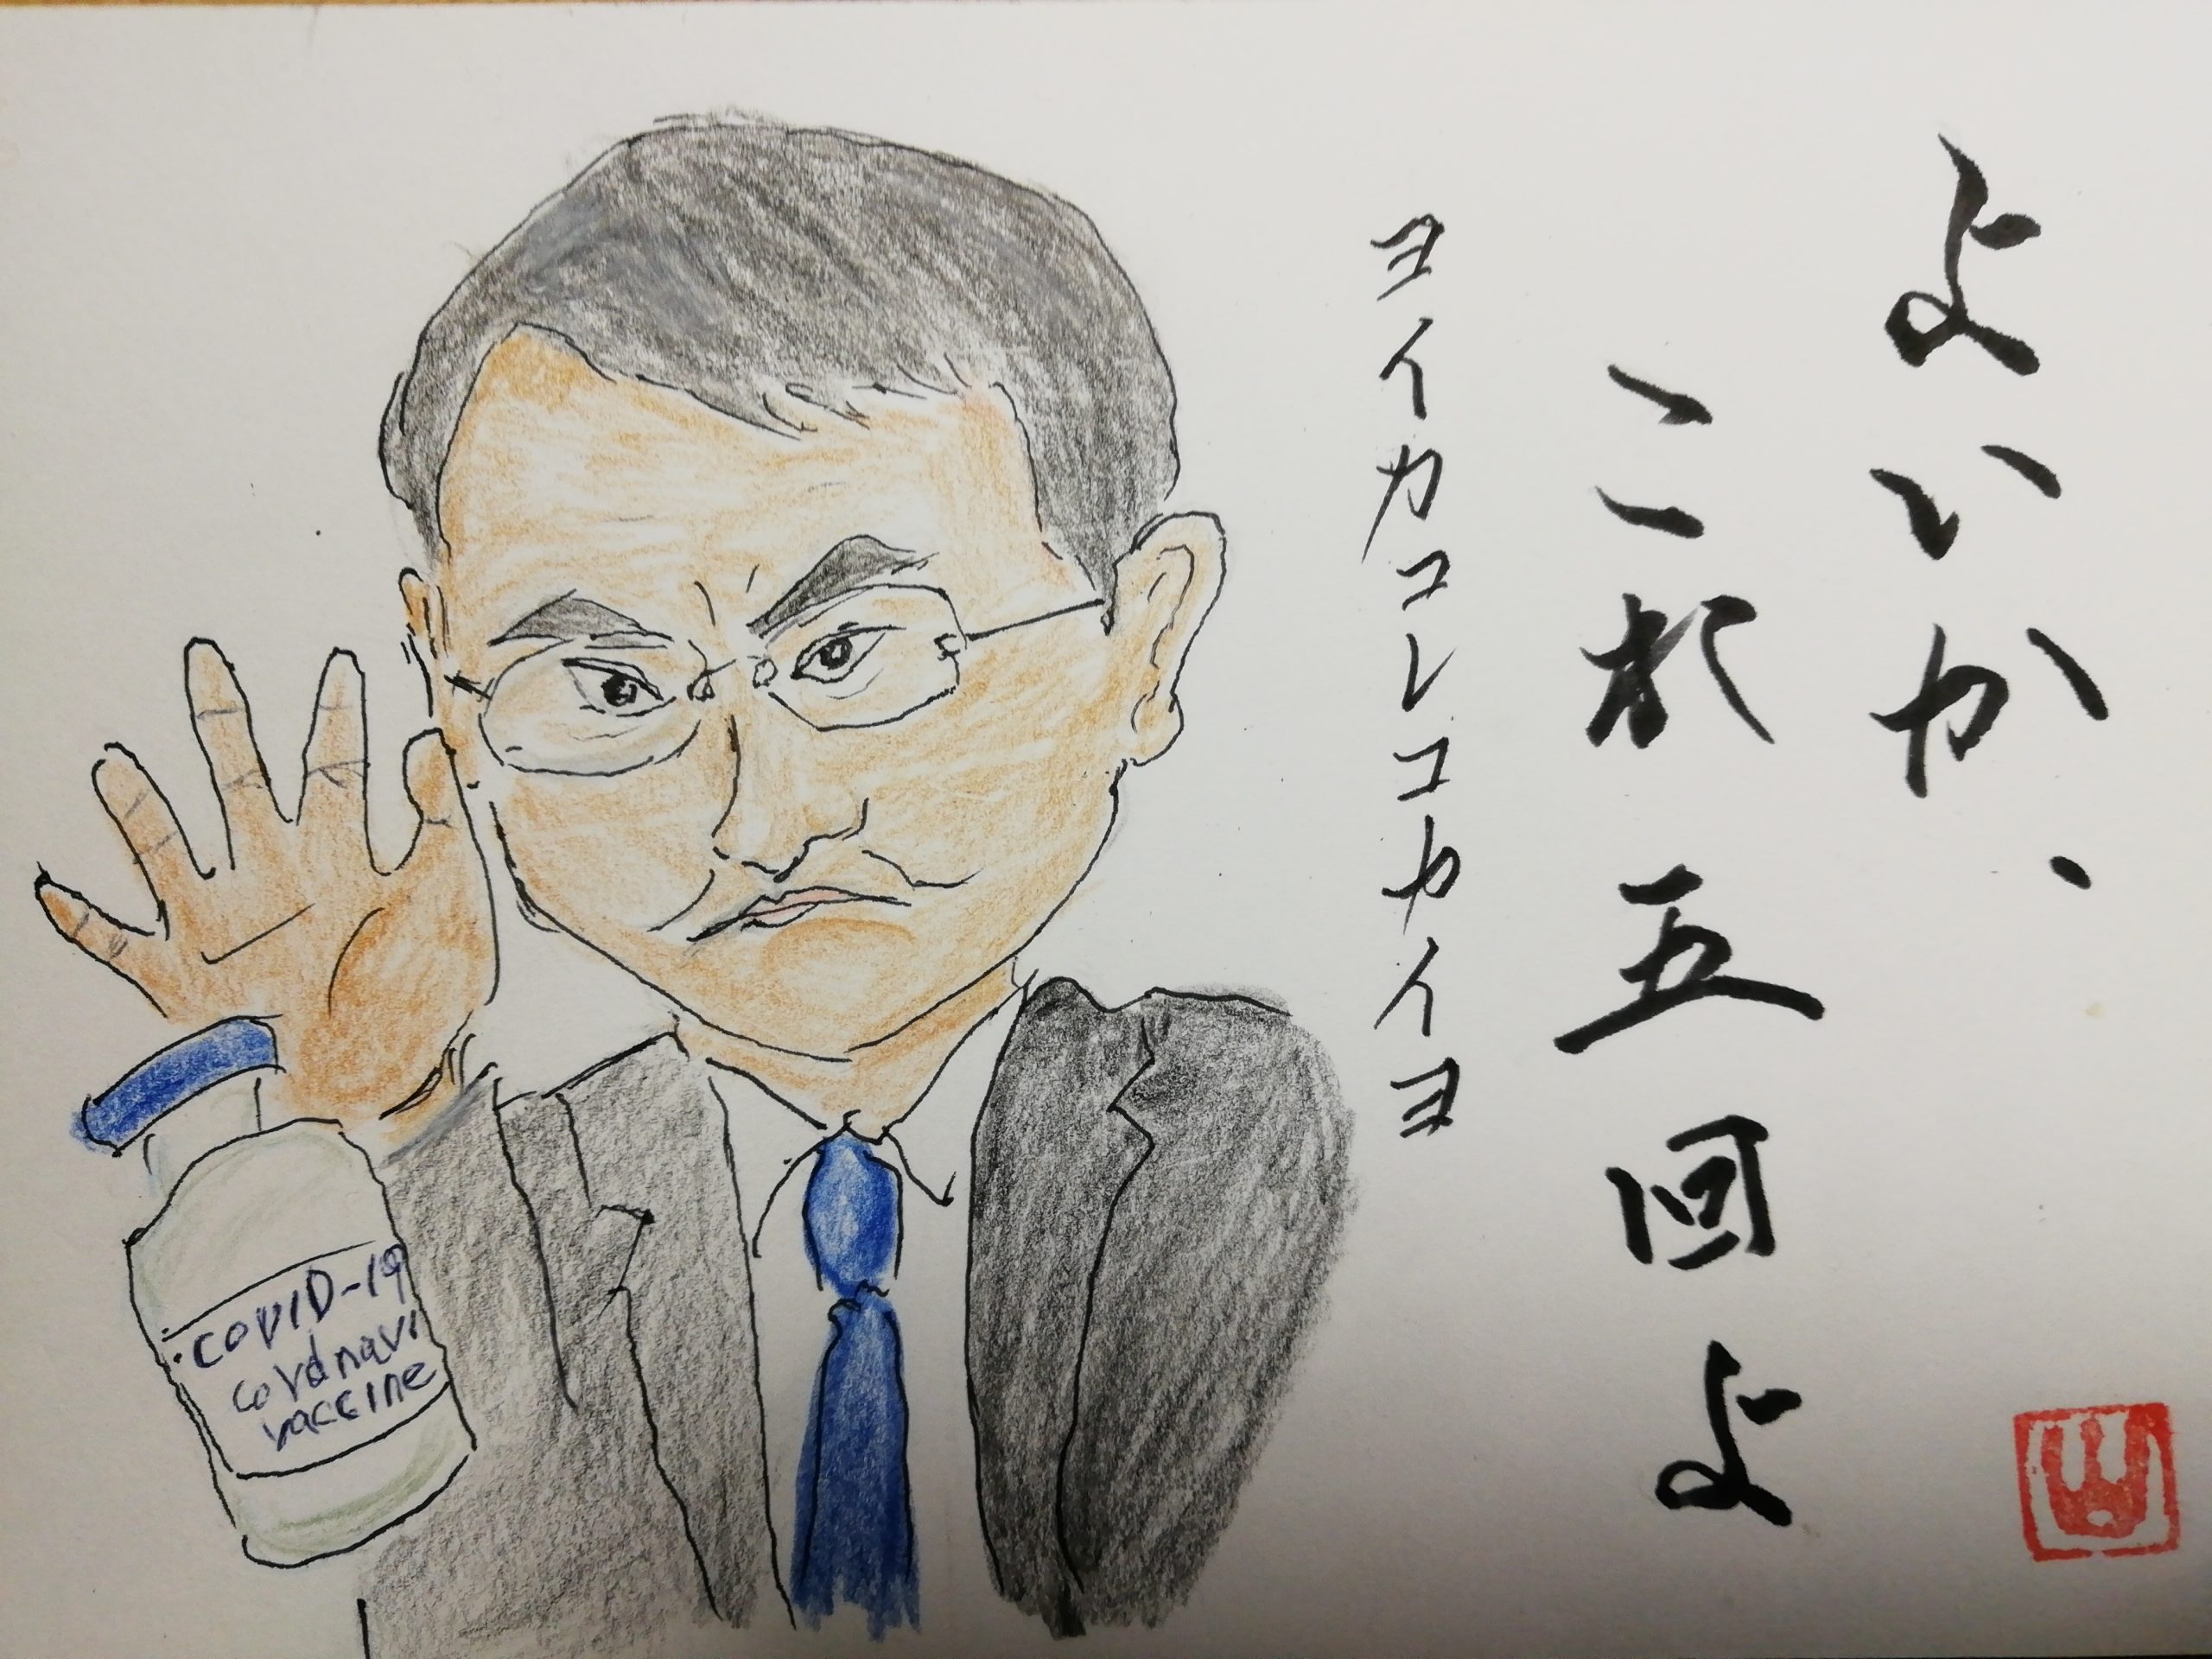 よいか、
これ五回よ
ヨイカコレコカイヨ
COVID-19
covdnavi
vaccine